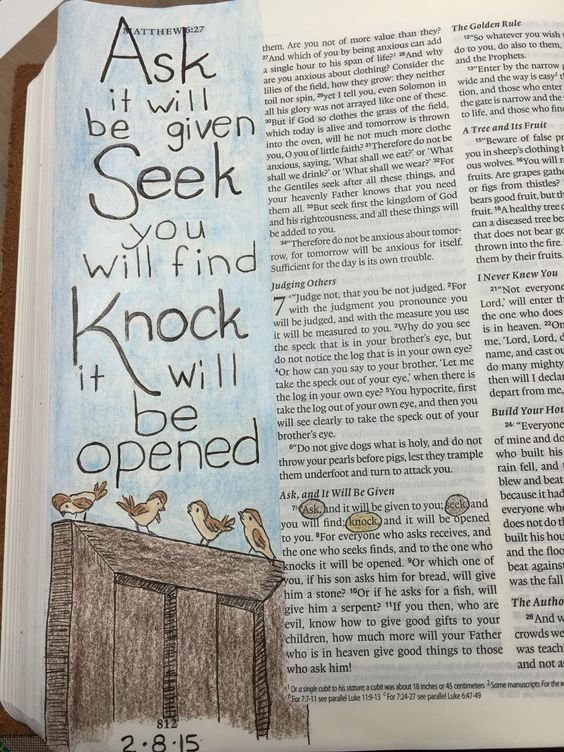 MATTHEW 6:27
Ask
it will
be given
Seek
you
will find
Knock
it will
be
opened
812
2·8·15
them. Are you not of more value than they?
27And which of you by being anxious can add
a single hour to his span of life?1 28And why
are you anxious about clothing? Consider the
lilies of the field, how they grow: they neither
toil nor spin, 29yet I tell you, even Solomon in
all his glory was not arrayed like one of these.
30But if God so clothes the grass of the field,
which today is alive and tomorrow is thrown
into the oven, will he not much more clothe
you, O you of little faith? 31Therefore do not be
anxious, saying, 'What shall we eat?' or 'What
shall we drink?' or 'What shall we wear?' 32For
the Gentiles seek after all these things, and
your heavenly Father knows that you need
them all. 33But seek first the kingdom of God
and his righteousness, and all these things will
be added to you.
34"Therefore do not be anxious about tomor-
row, for tomorrow will be anxious for itself.
Sufficient for the day is its own trouble.
Judging Others
7 "Judge not, that you be not judged. 2For
with the judgment you pronounce you
will be judged, and with the measure you use
it will be measured to you. 3Why do you see
the speck that is in your brother's eye, but
do not notice the log that is in your own eye?
4Or how can you say to your brother, 'Let me
take the speck out of your eye,' when there is
the log in your own eye? 5You hypocrite, first
take the log out of your own eye, and then you
will see clearly to take the speck out of your
brother's eye.
6"Do not give dogs what is holy, and do not
throw your pearls before pigs, lest they trample
them underfoot and turn to attack you.
Ask, and It Will Be Given
7"Ask, and it will be given to you; seek, and
you will find; knock, and it will be opened
to you. 8For everyone who asks receives, and
the one who seeks finds, and to the one who
knocks it will be opened. 9Or which one of
you, if his son asks him for bread, will give
him a stone? 10Or if he asks for a fish, will
give him a serpent? 11If you then, who are
evil, know how to give good gifts to your
children, how much more will your Father
who is in heaven give good things to those
who ask him!
The Golden Rule
12"So whatever you wish
do to you, do also to them,
and the Prophets.
13"Enter by the narrow
wide and the way is easy2
tion, and those who enter
the gate is narrow and the
to life, and those who find
A Tree and Its Fruit
15"Beware of false
you in sheep's clothing
ous wolves. 16You will
fruits. Are grapes gathe
or figs from thistles?
bears good fruit, but th
fruit. 18A healthy tree
can a diseased tree bea
that does not bear go
thrown into the fire.
them by their fruits.
I Never Knew You
21"Not everyone
Lord,' will enter th
the one who does
is in heaven. 22On
me, 'Lord, Lord, d
name, and cast ou
do many mighty
then will I declar
depart from me,
Build Your Hou
24"Everyone
of mine and do
who built his
rain fell, and
blew and beat
because it had
everyone who
does not do th
built his hous
and the floo
beat against
was the fall
The Autho
28And w
crowds we
was teach
and not as
1 Or a single cubit to his stature; a cubit was about 18 inches or 45 centimeters 2 Some manuscripts For the w
For 7:7-11 see parallel Luke 11:9-13 For 7:24-27 see parallel Luke 6:47-49